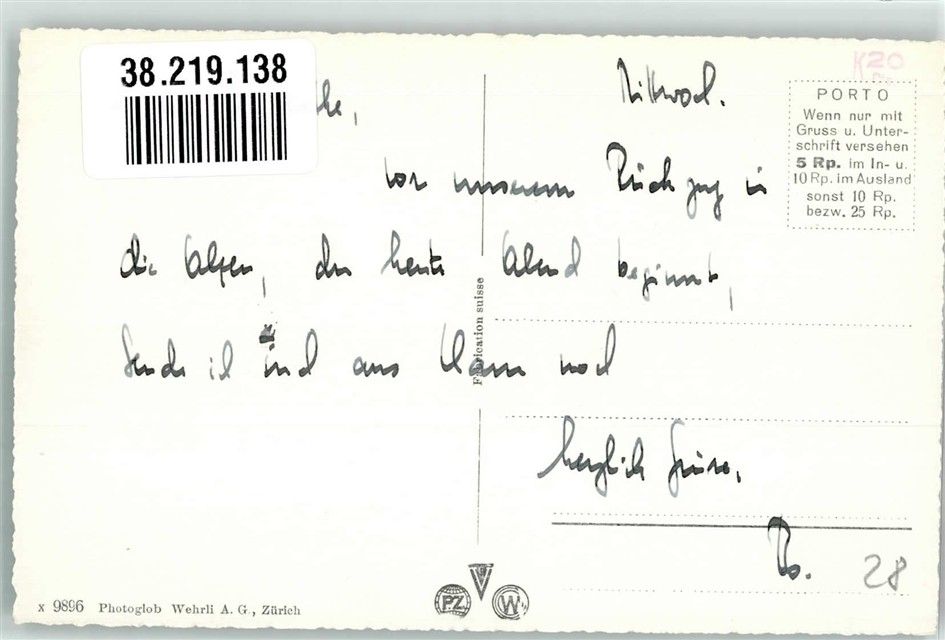 38.219.138
Mittwoch.
K20
PORTO
Wenn nur mit
Gruss u. Unter-
schrift versehen
5 Rp. im In- u.
10 Rp. im Ausland
sonst 10 Rp.
bezw. 25 Rp.
vor unserem Rückzug in
die Alpen, der heute Abend beginnt,
sende ich Euch aus noch
herzlich Grüsse,
28
Fabrication suisse
x 9896 Photoglob Wehrli A. G., Zürich
PZ W